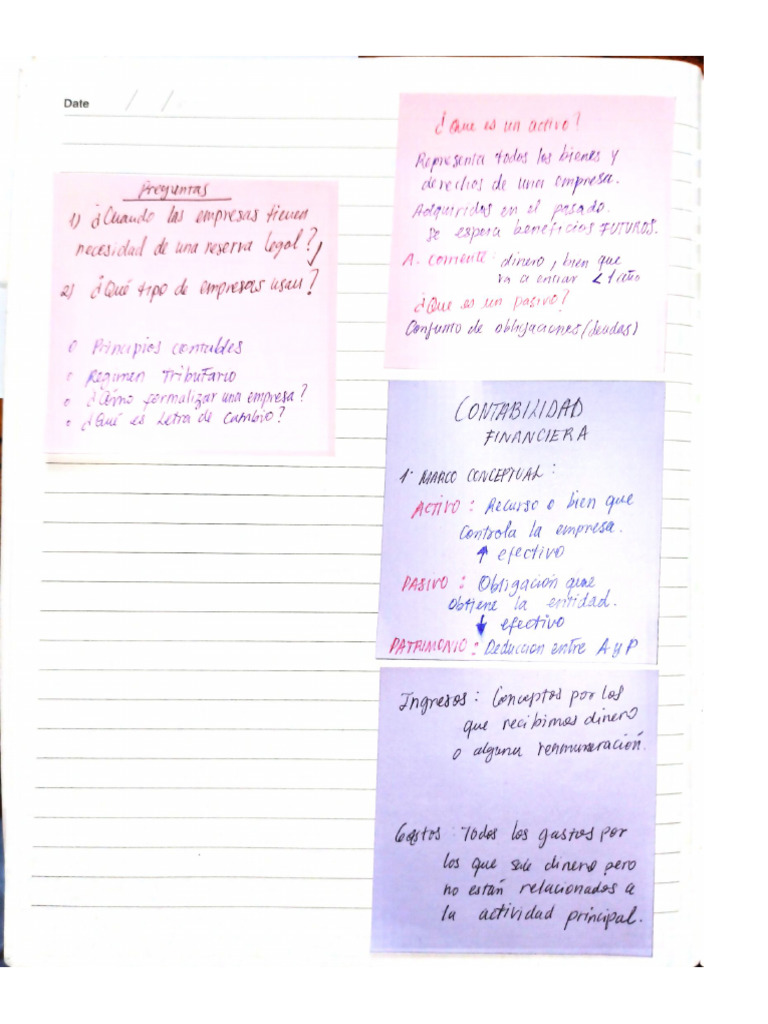 Date / /
Preguntas
1) ¿Cuando las empresas tienen
necesidad de una reserva legal?
2) ¿Qué tipo de empresas usan?
o Principios contables
o Regimen Tributario
o ¿Cómo formalizar una empresa?
o ¿Qué es Letra de Cambio?
¿Que es un activo?
Representa todos los bienes y
derechos de una empresa.
Adquiridos en el pasado.
se espera beneficios FUTUROS.
A. Corriente: dinero, bien que
va a entrar < 1 año
¿Que es un pasivo?
Conjunto de obligaciones (deudas)
CONTABILIDAD
FINANCIERA
1. MARCO CONCEPTUAL:
ACTIVO: Recurso o bien que
controla la empresa.
↑ efectivo
PASIVO: Obligación que
obtiene la entidad.
↓ efectivo
PATRIMONIO: Deduccion entre A y P
Ingresos: Conceptos por los
que recibimos dinero
o alguna renmuneración.
Gastos: Todos los gastos por
los que sale dinero pero
no están relacionados a
la actividad principal.